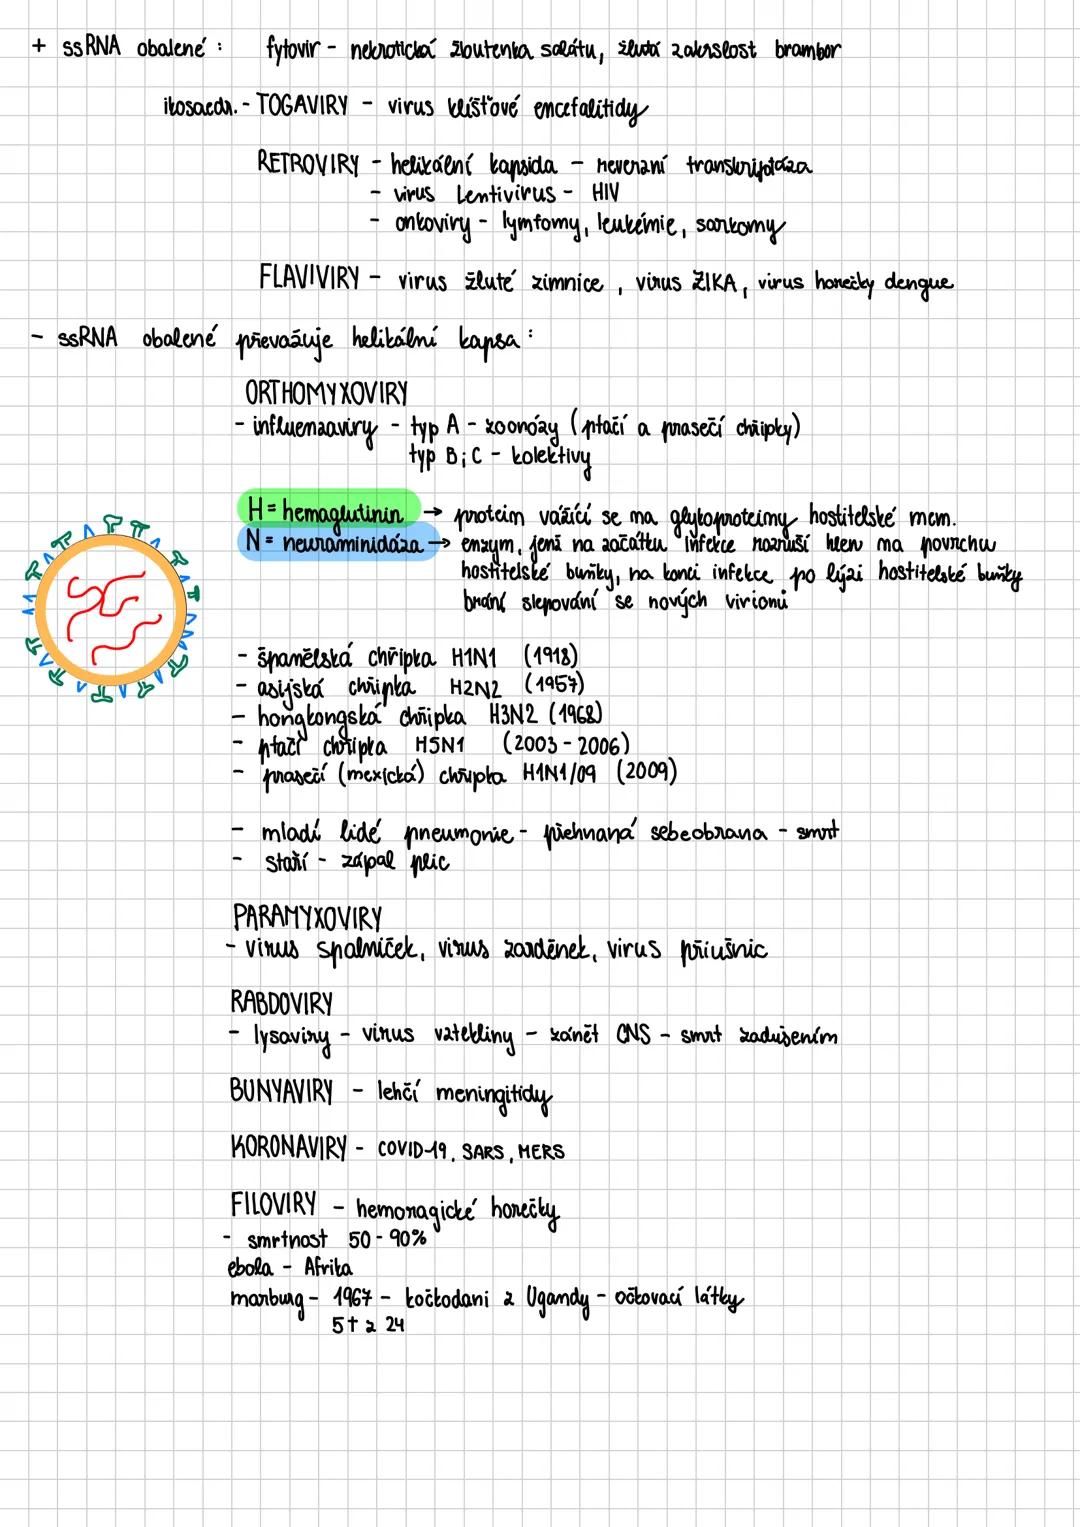 + ssRNA obalené : fytovir - nekrotická žloutenka salátu, žlutá zakrslost brambor
ikosaedr. - TOGAVIRY - virus klíšťové encefalitidy
RETROVIRY - helikální kapsida - reverzní transkriptáza
- virus Lentivirus - HIV
- onkoviry - lymfomy, leukémie, sarkomy
FLAVIVIRY - virus žluté zimnice, virus ŽIKA, virus horečky dengue
- ssRNA obalené převažuje helikální kapsa :
ORTHOMYXOVIRY
- influenzaviry - typ A - zoonózy (ptačí a prasečí chřipky)
typ B; C - kolektivy
H = hemaglutinin → protein vážící se na glykoproteiny hostitelské mem.
N = neuraminidáza → enzym, jenž na začátku infekce rozruší hlen na povrchu
hostitelské buňky, na konci infekce po lýzi hostitelské buňky
brání slepování se nových virionů
- španělská chřipka H1N1 (1918)
- asijská chřipka H2N2 (1957)
- hongkongská chřipka H3N2 (1968)
- ptačí chřipka H5N1 (2003 - 2006)
- prasečí (mexická) chřipka H1N1/09 (2009)
- mladí lidé pneumonie - přehnaná sebeobrana - smrt
- staří - zápal plic
PARAMYXOVIRY
- virus spalniček, virus zarděnek, virus příušnic
RABDOVIRY
- lysaviry - virus vztekliny - zánět CNS - smrt zadušením
BUNYAVIRY - lehčí meningitidy
KORONAVIRY - COVID-19, SARS, MERS
FILOVIRY - hemoragické horečky
- smrtnost 50 - 90%
ebola - Afrika
marburg - 1967 - kočkodani z Ugandy - očkovací látky
5† z 24